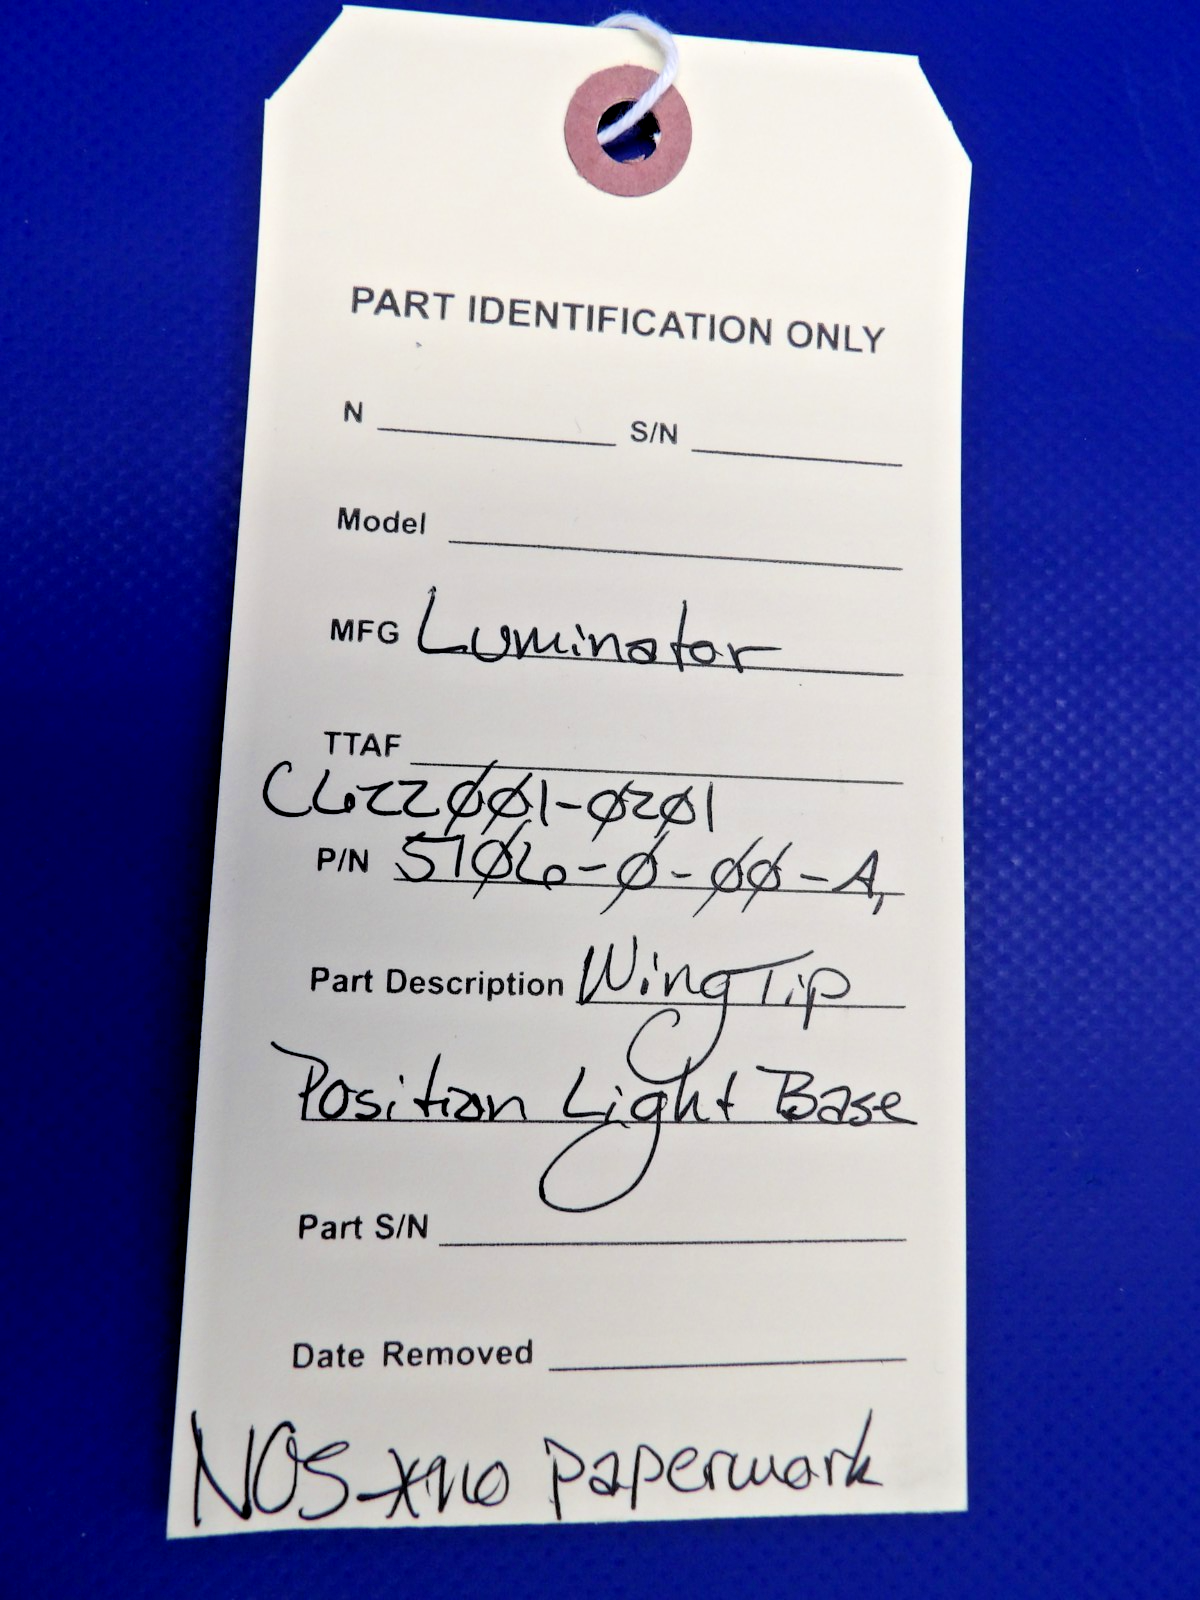 PART IDENTIFICATION ONLY
N S/N
Model
MFG Luminator
TTAF
C622001-0201
P/N 5706-0-00-A,
Part Description Wing Tip
Position Light Base
Part S/N
Date Removed
NOS-*no paperwork